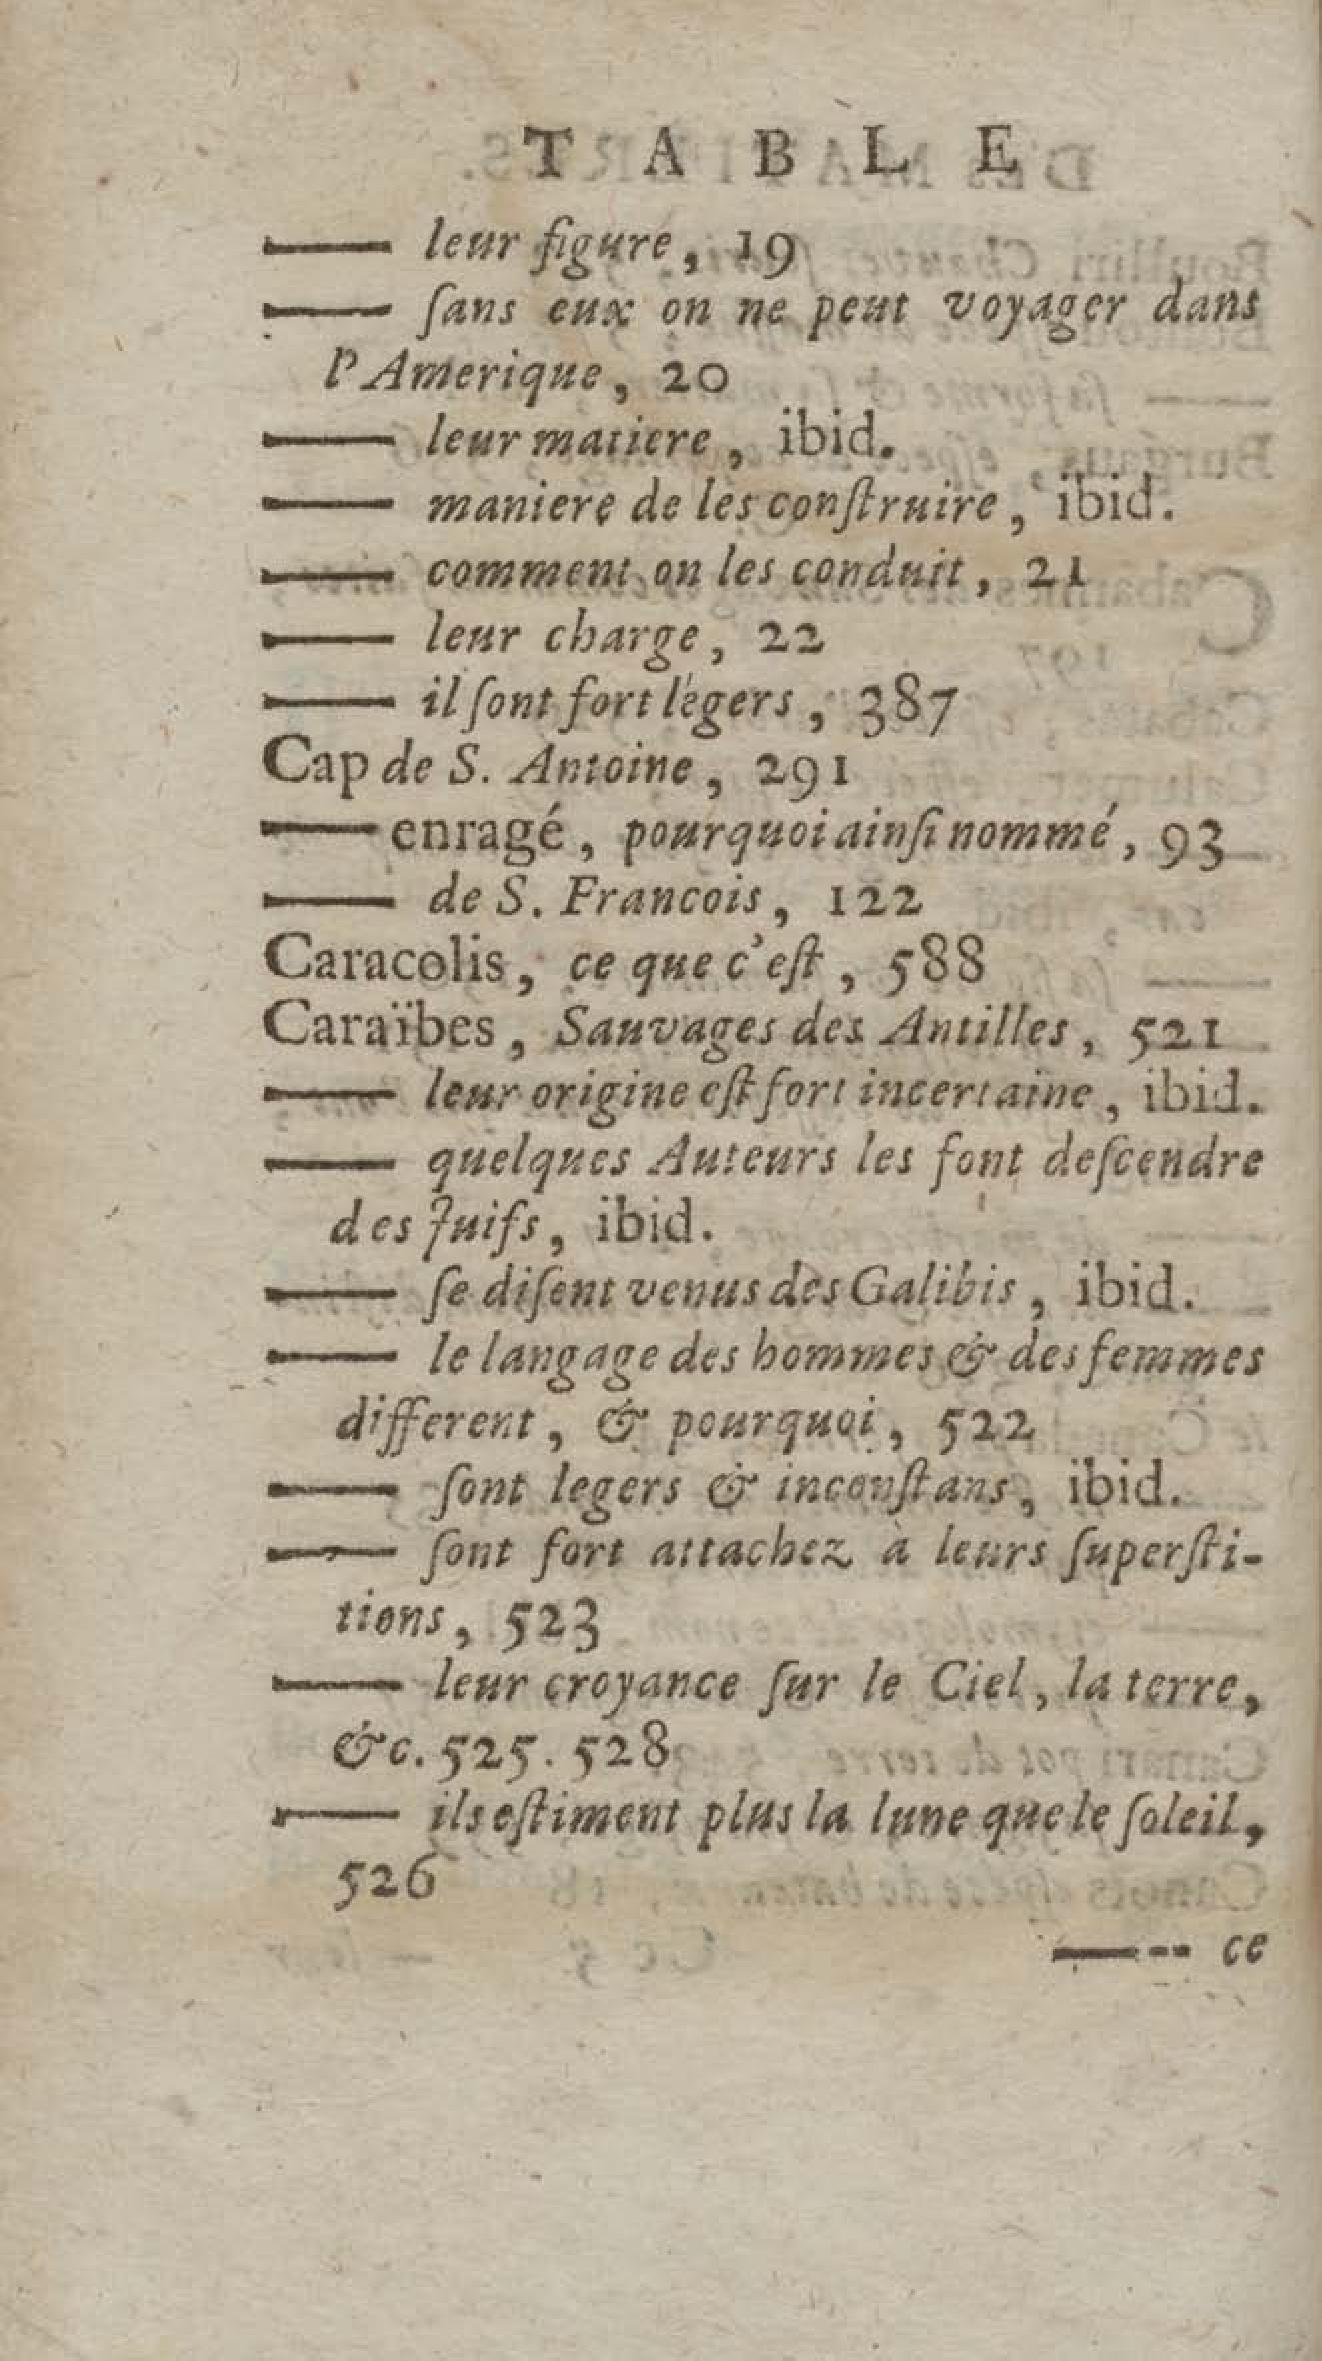 TABLE
—— leur figure, 19
—— ſans eux on ne peut voyager dans
l'Amerique, 20
—— leur matiere, ibid.
—— maniere de les conſtruire, ibid.
—— comment on les conduit, 21
—— leur charge, 22
—— il ſont fort légers, 387
Cap de S. Antoine, 291
—— enragé, pourquoi ainſi nommé, 93
—— de S. Francois, 122
Caracolis, ce que c'eſt, 588
Caraïbes, Sauvages des Antilles, 521
—— leur origine eſt fort incertaine, ibid.
—— quelques Auteurs les font deſcendre
des Juifs, ibid.
—— ſe diſent venus des Galibis, ibid.
—— le langage des hommes & des femmes
different, & pourquoi, 522
—— ſont legers & inconſtans, ibid.
—— ſont fort attachez à leurs ſuperſti-
tions, 523
—— leur croyance ſur le Ciel, la terre,
&c. 525. 528
—— ils eſtiment plus la lune que le ſoleil,
526
——-- ce